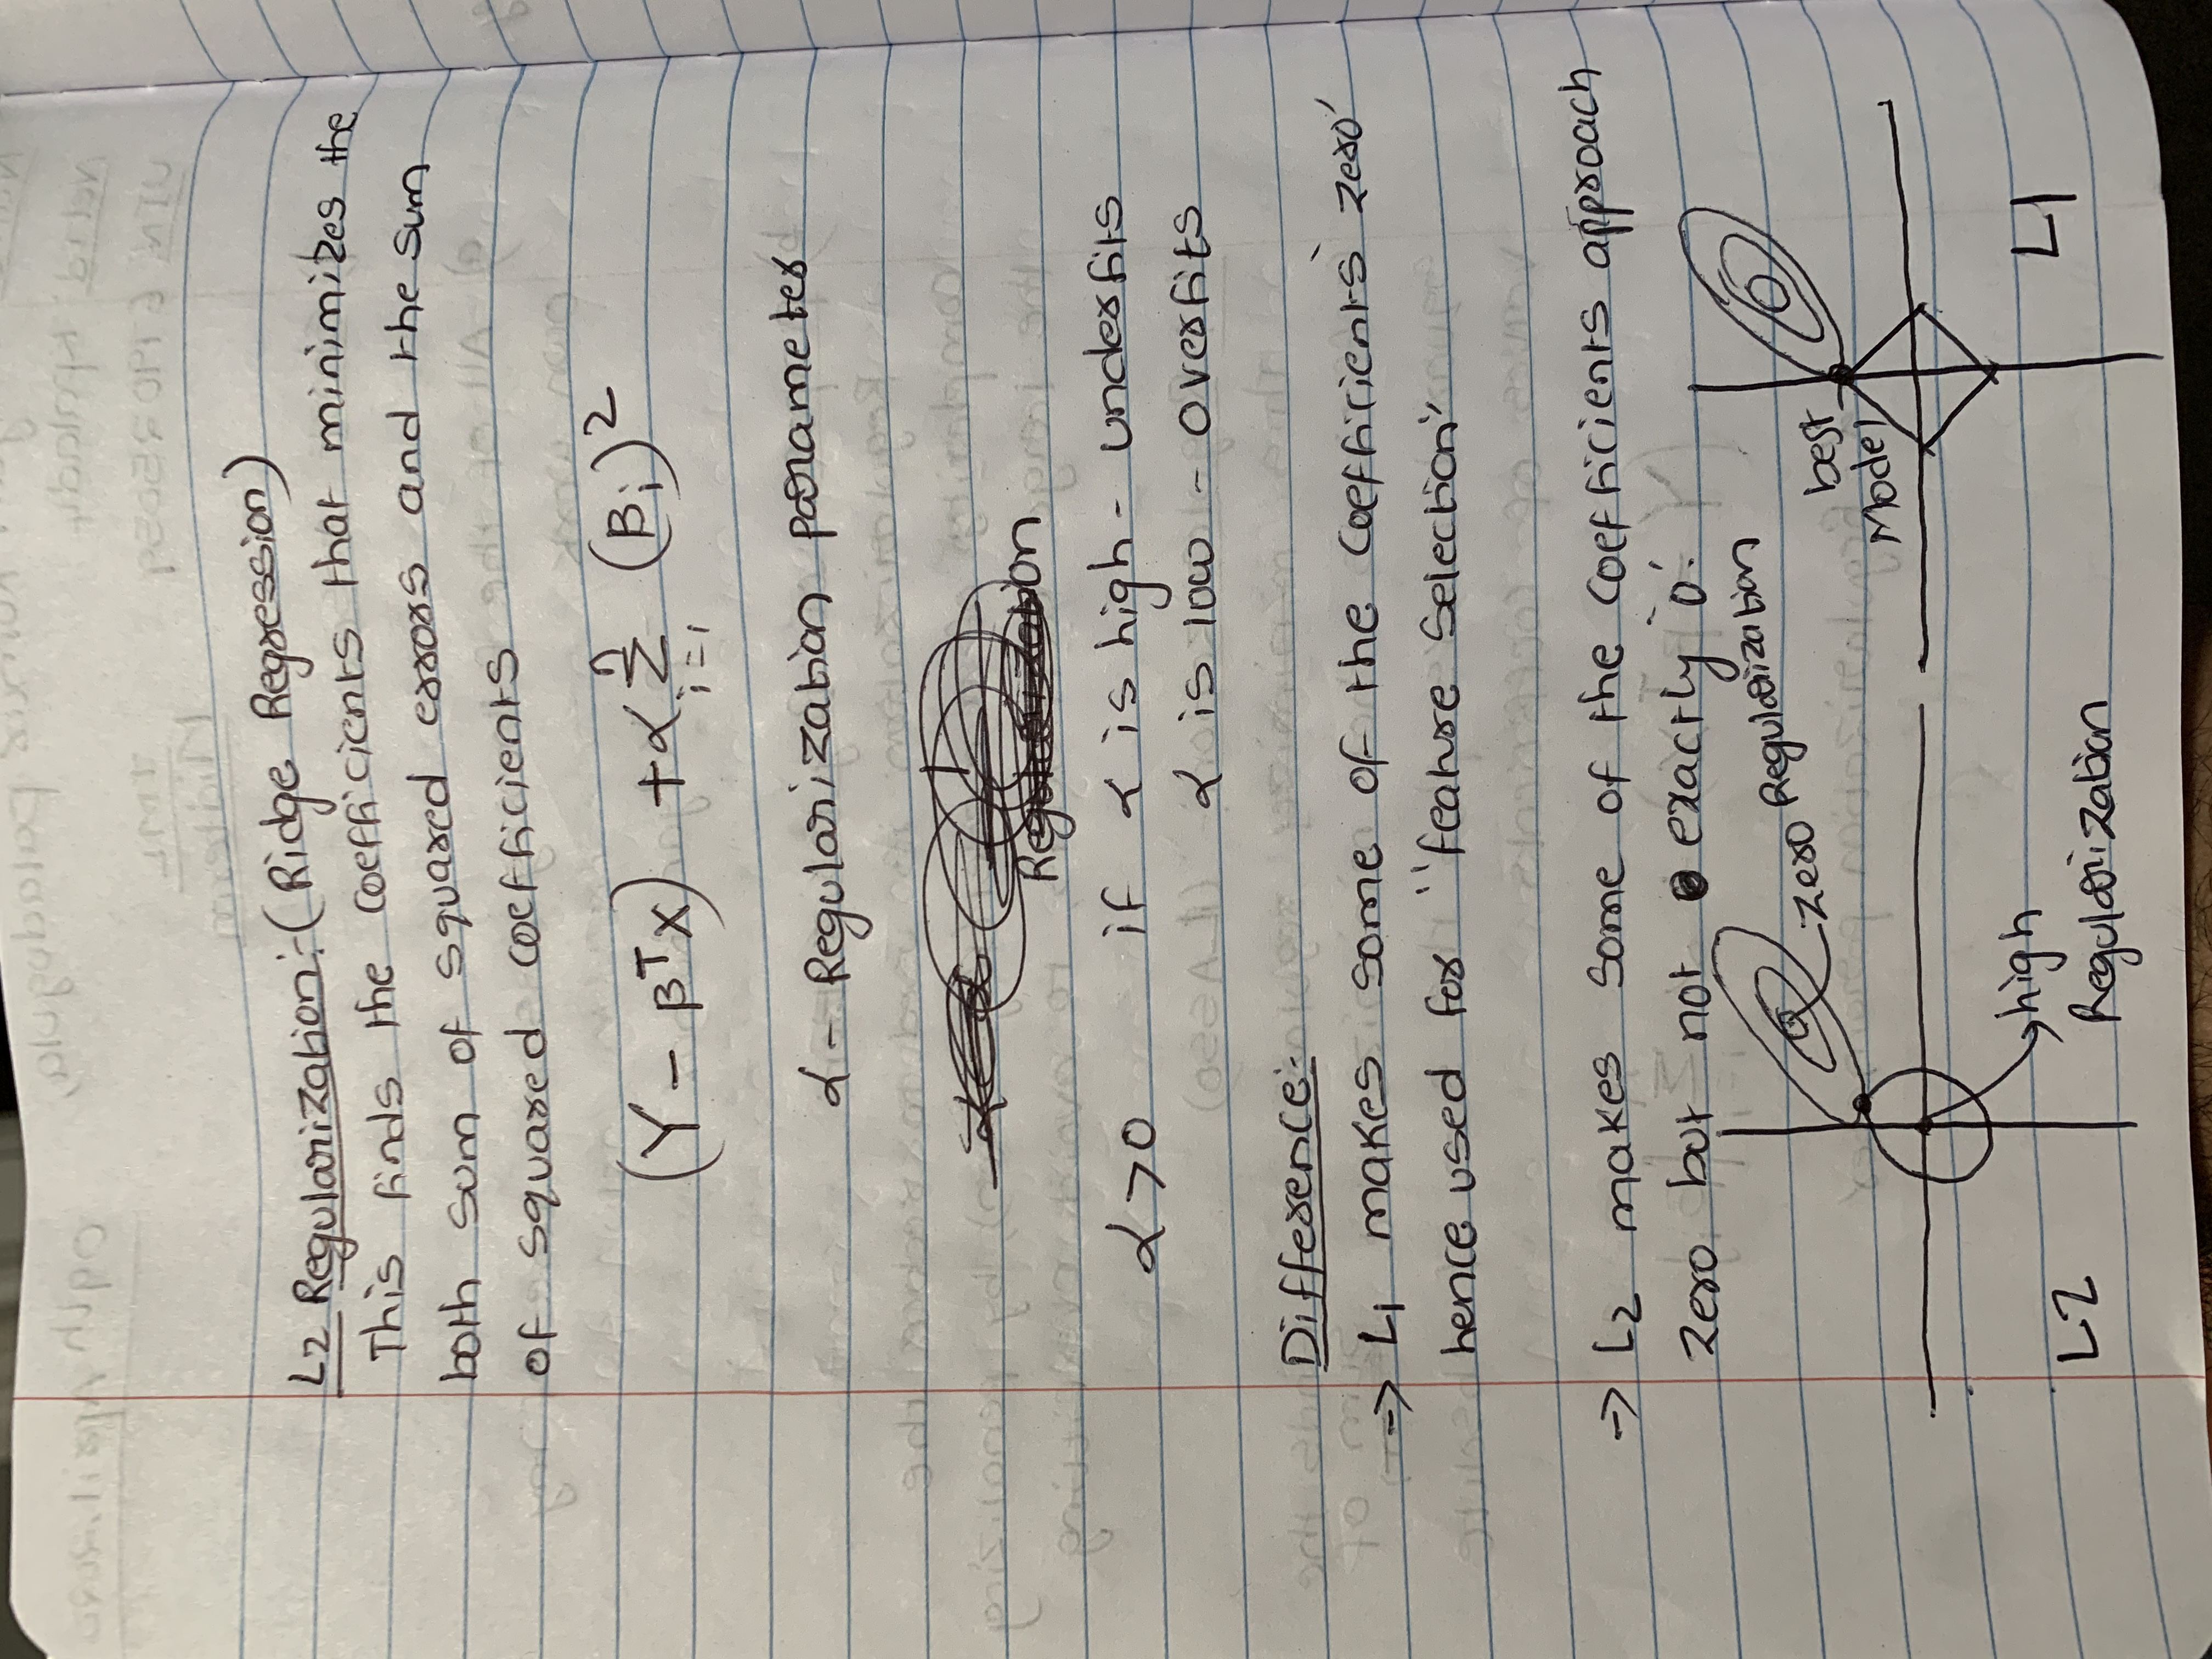 L2 Regularization:- (Ridge Regression)
This finds the coefficients that minimizes the
both sum of squared errors and the sum
of squared coefficients
(Y - βᵀX) + α Σⁿᵢ₌₁ (βᵢ)²
α - Regularization parameter
Regularization
α > 0 if α is high - underfits
α is low - overfits
Difference:-
-> L1 makes some of the coefficients 'zero'
hence used for "feature selection"
-> L2 makes some of the coefficients approach
zero but not exactly '0'.
zero Regularization
best
Model
high
Regularization
L2
L1